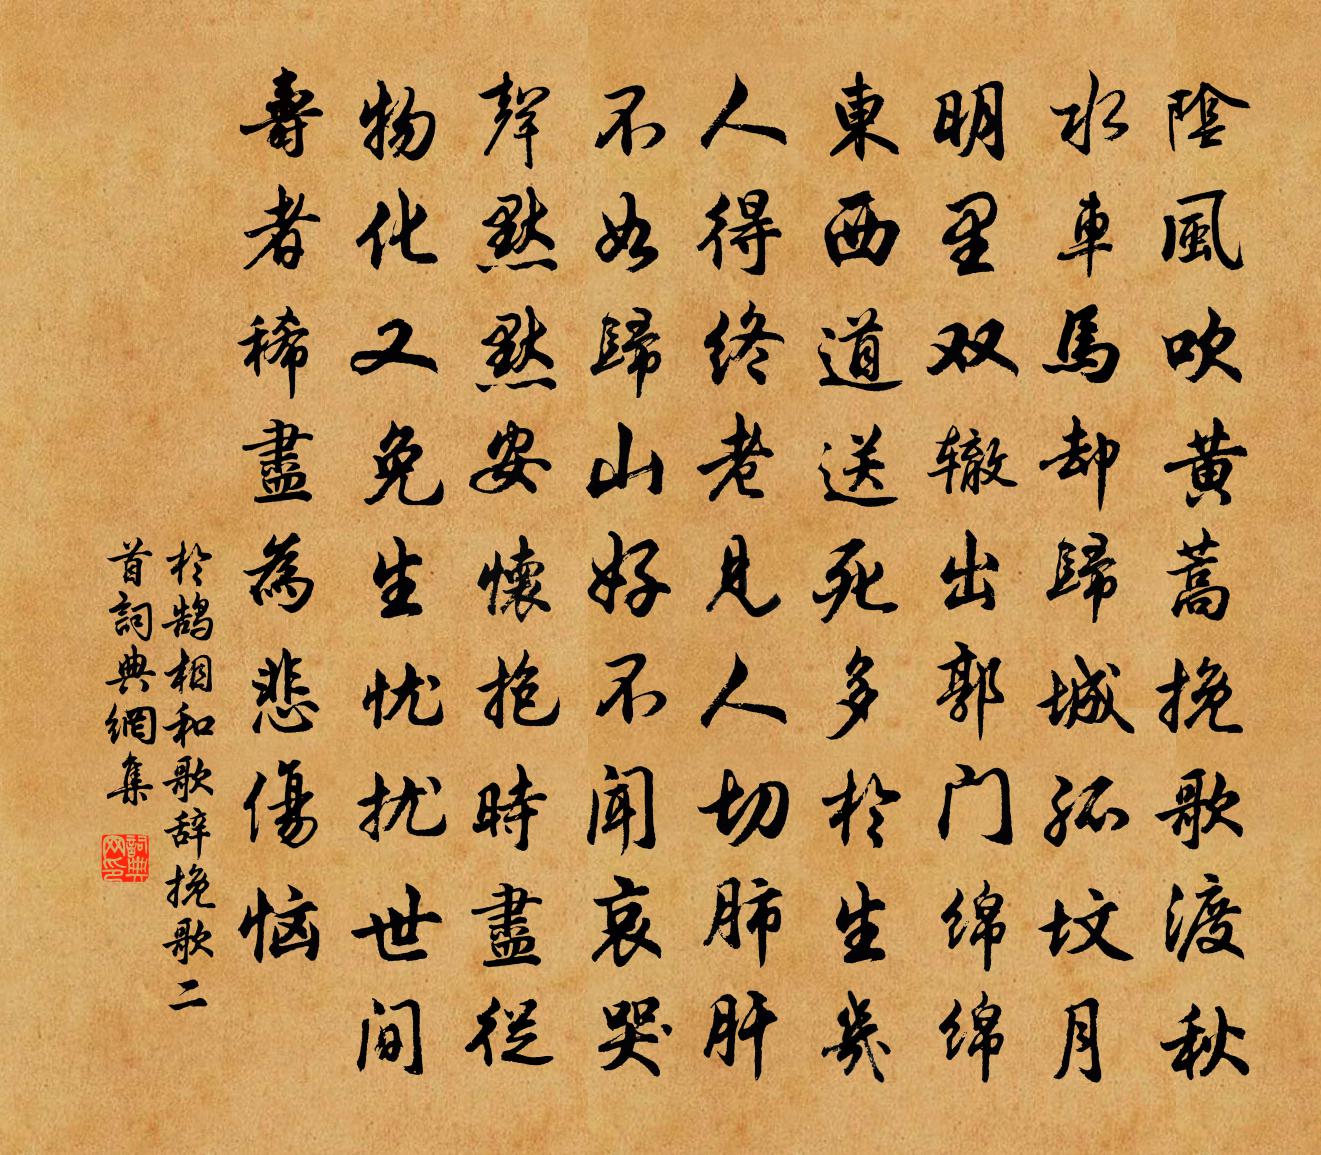 陰風吹黄蒿挽歌渡秋
水車馬却歸城孤坟月
明里双辙出郭门绵绵
東西道送死多於生幾
人得终老見人切肺肝
不如歸山好不闻哀哭
聲默默安懷抱時盡從
物化又免生忧扰世间
壽者稀盡為悲傷恼
於鹄相和歌辞挽歌二
首詞典網集
詞典网印